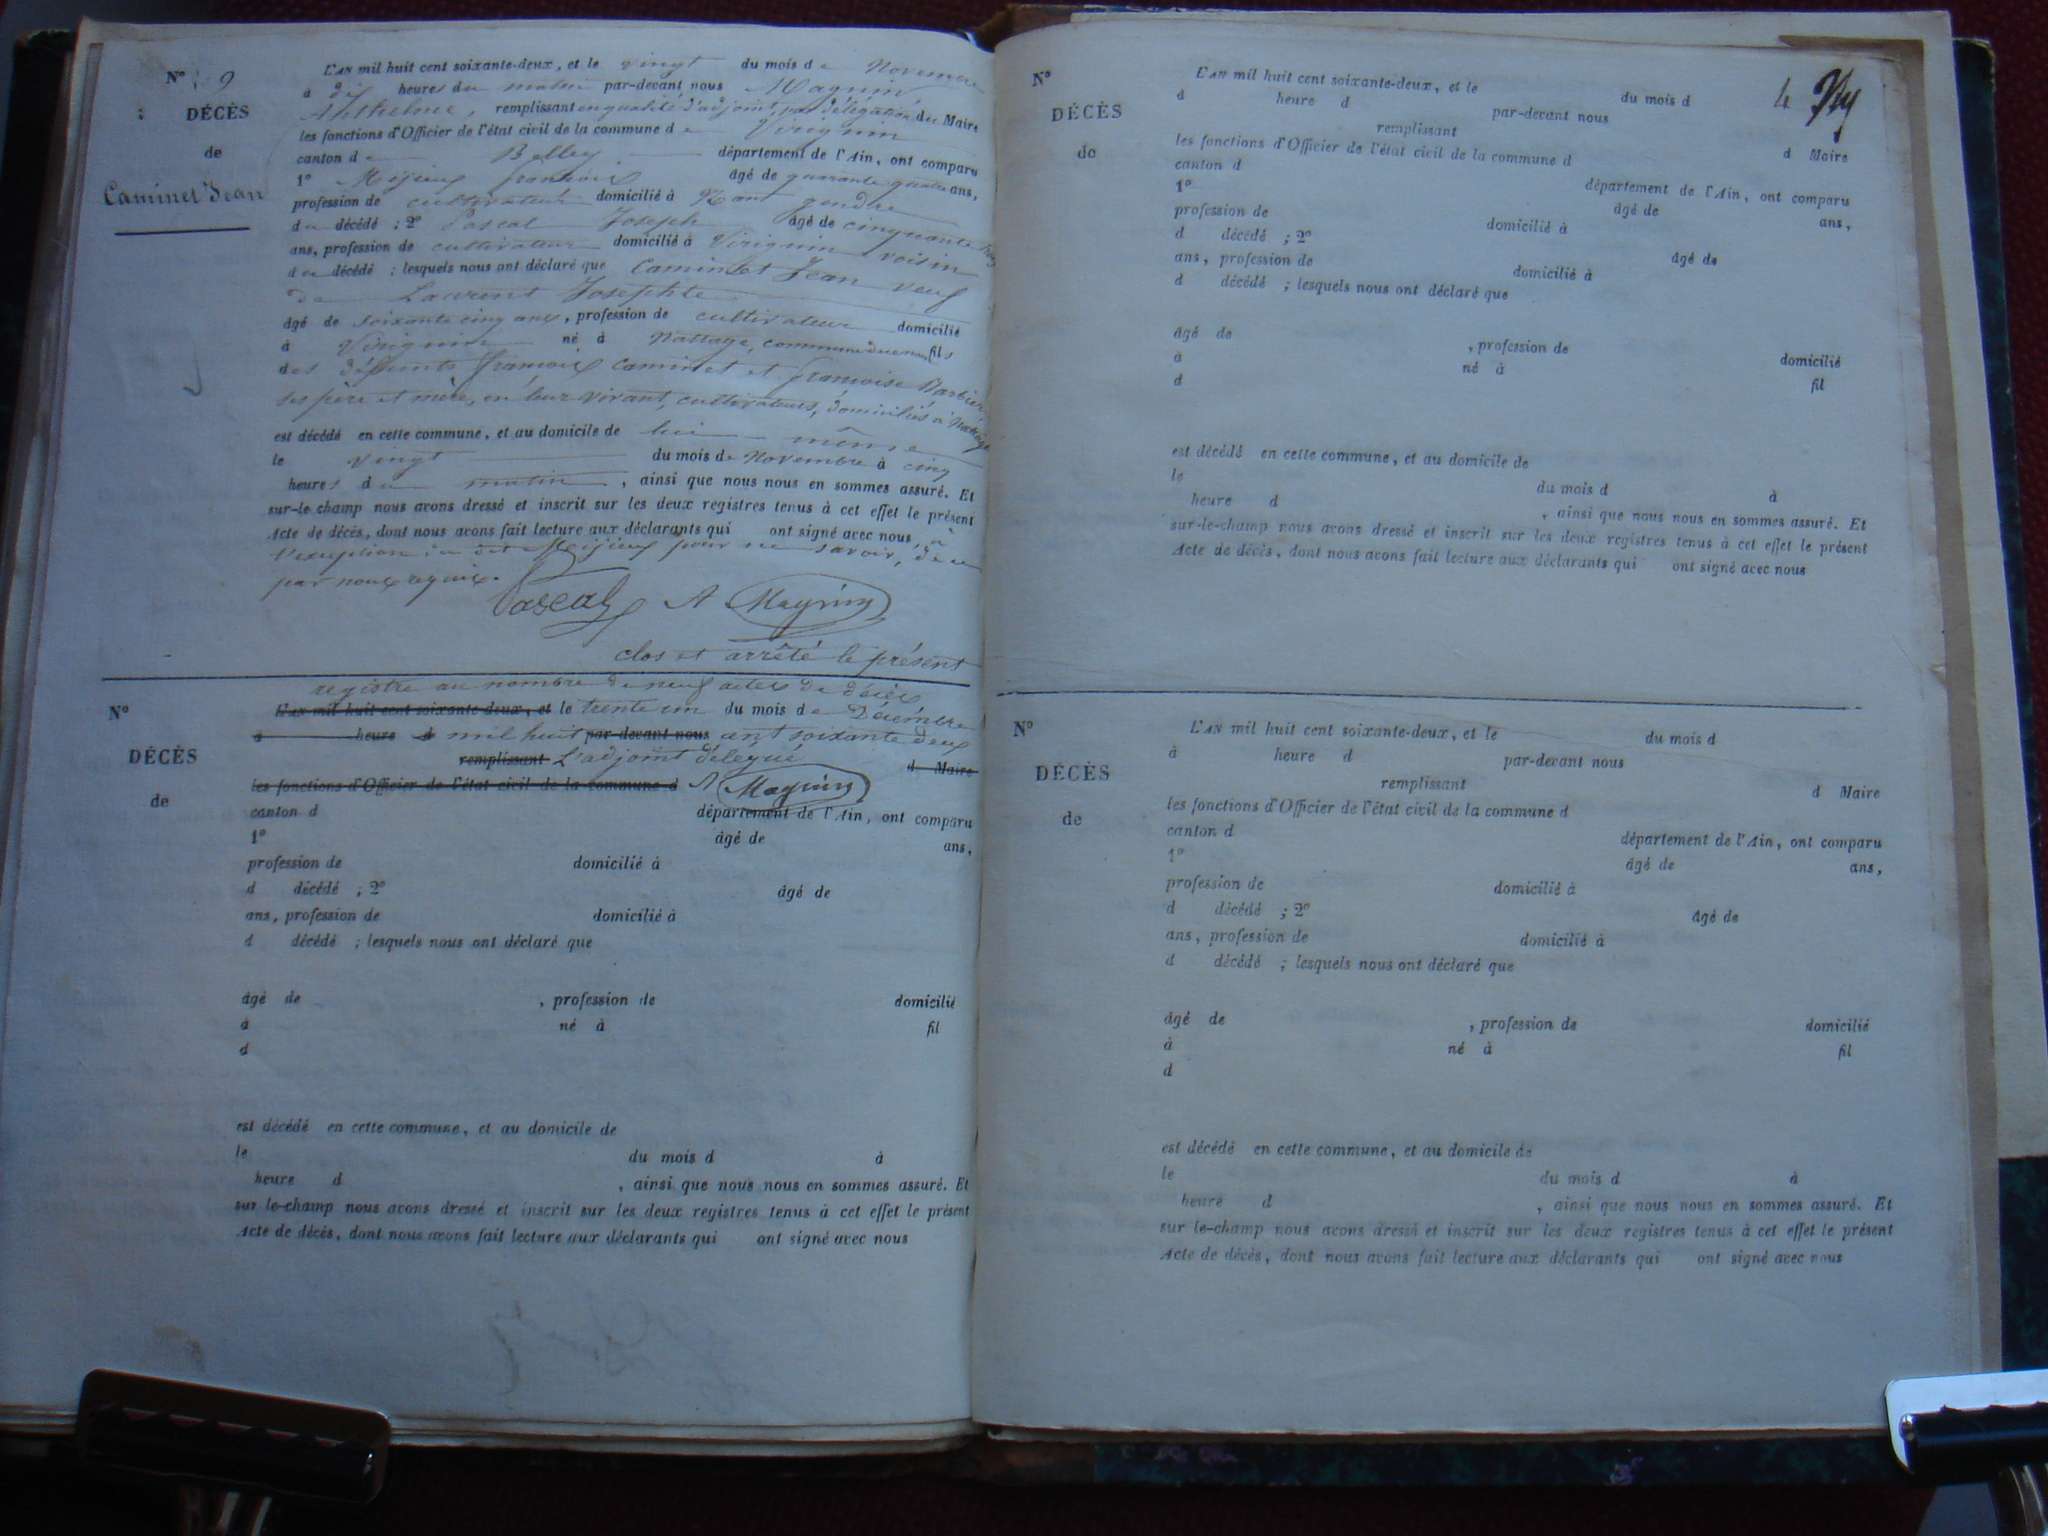 N° 9
DÉCÈS
de
Caminet Jean
L'AN mil huit cent soixante-deux, et le vingt du mois de Novembre
à dix heures du matin par-devant nous Magnin
Anthelme, remplissant en qualité d'adjoint, par délégation du Maire
les fonctions d'Officier de l'état civil de la commune de Virignin
canton de Belley département de l'Ain, ont comparu
1° Mojieux françois âgé de quarante quatre ans,
profession de cultivateur domicilié à Nant gendre
du décédé ; 2° Pascal Joseph âgé de cinquante trois
ans, profession de cultivateur domicilié à Virignin voisin
du décédé ; lesquels nous ont déclaré que Caminet Jean veuf
de Laurent Josephte
âgé de soixante cinq ans, profession de cultivateur domicilié
à Virignin né à Nattage, commune du même fils
des défunts françois Caminet et françoise Barbier,
ses père et mère, en leur vivant, cultivateurs, domiciliés à Nattage
est décédé en cette commune, et au domicile de lui - même
le vingt du mois de Novembre à cinq
heures du matin, ainsi que nous nous en sommes assuré. Et
sur-le-champ nous avons dressé et inscrit sur les deux registres tenus à cet effet le présent
Acte de décès, dont nous avons fait lecture aux déclarants qui ont signé avec nous, à
l'exception du dit pour ne savoir, de ce
par nous requis.
Pascal A Magnin
clos et arrêté le présent
registre au nombre de neuf actes de décès
N°
DÉCÈS
de
L'AN mil huit cent soixante-deux, et le trente un du mois de Décembre
à heure d mil huit par-devant nous cent soixante deux
remplissant L'adjoint délégué d Maire
les fonctions d'Officier de l'état civil de la commune d A Magnin
canton d département de l'Ain, ont comparu
1° âgé de ans,
profession de domicilié à
d décédé ; 2° âgé de
ans, profession de domicilié à
d décédé ; lesquels nous ont déclaré que
âgé de , profession de domicilié
à né à fil
d
est décédé en cette commune, et au domicile de
le du mois d à
heure d , ainsi que nous nous en sommes assuré. Et
sur le-champ nous avons dressé et inscrit sur les deux registres tenus à cet effet le présent
Acte de décès, dont nous avons fait lecture aux déclarants qui ont signé avec nous
N°
DÉCÈS
de
4
L'AN mil huit cent soixante-deux, et le du mois d
à heure d par-devant nous
remplissant d Maire
les fonctions d'Officier de l'état civil de la commune d
canton d département de l'Ain, ont comparu
1° âgé de ans,
profession de domicilié à
d décédé ; 2° âgé de
ans, profession de domicilié à
d décédé ; lesquels nous ont déclaré que
âgé de , profession de domicilié
à né à fil
d
est décédé en cette commune, et au domicile de
le du mois d à
heure d , ainsi que nous nous en sommes assuré. Et
sur-le-champ nous avons dressé et inscrit sur les deux registres tenus à cet effet le présent
Acte de décès, dont nous avons fait lecture aux déclarants qui ont signé avec nous
N°
DÉCÈS
de
L'AN mil huit cent soixante-deux, et le du mois d
à heure d par-devant nous
remplissant d Maire
les fonctions d'Officier de l'état civil de la commune d
canton d département de l'Ain, ont comparu
1° âgé de ans,
profession de domicilié à
d décédé ; 2° âgé de
ans, profession de domicilié à
d décédé ; lesquels nous ont déclaré que
âgé de , profession de domicilié
à né à fil
d
est décédé en cette commune, et au domicile de
le du mois d à
heure d , ainsi que nous nous en sommes assuré. Et
sur le-champ nous avons dressé et inscrit sur les deux registres tenus à cet effet le présent
Acte de décès, dont nous avons fait lecture aux déclarants qui ont signé avec nous